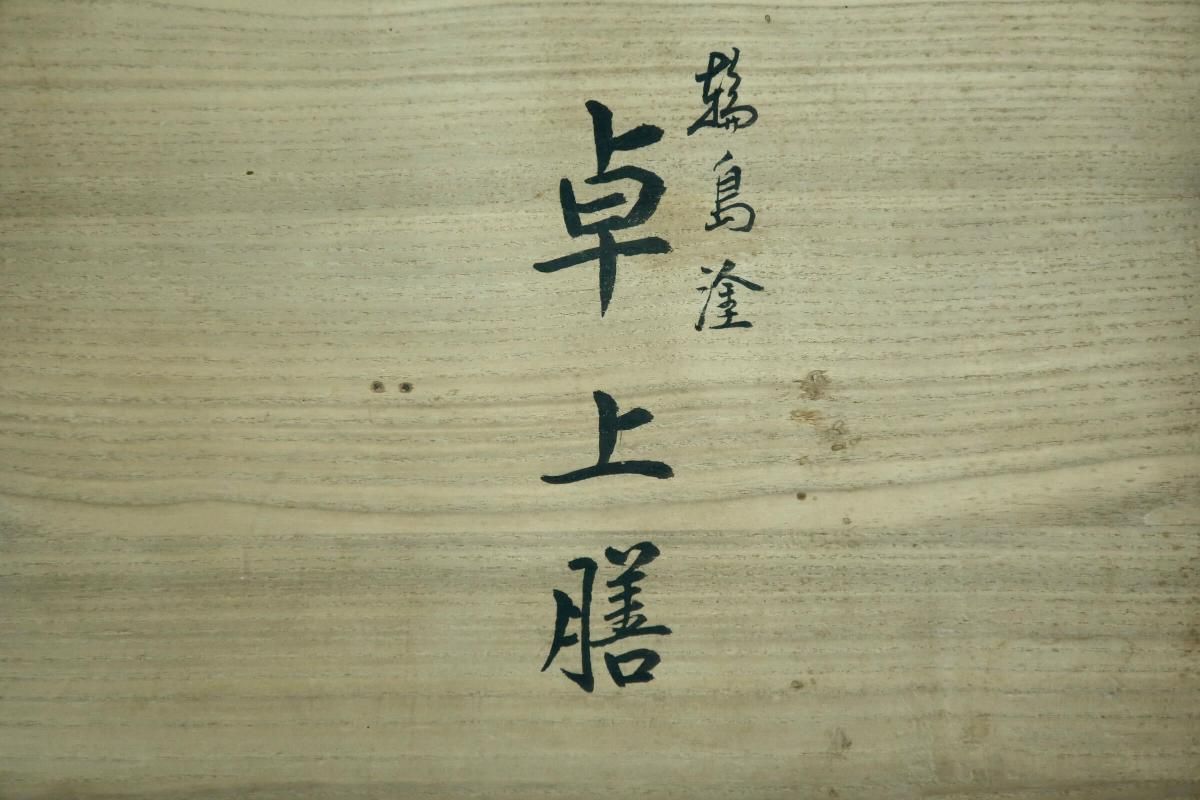 輪島塗
卓上膳